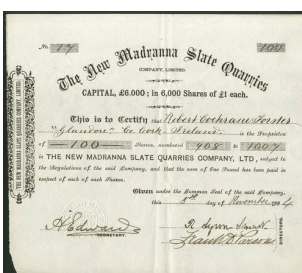 No. 17
100
The New Madranna Slate Quarries
COMPANY, LIMITED.
CAPITAL, £6,000; in 6,000 Shares of £1 each.
This is to Certify that Robert Cochrane Forster
"Glandore" Co. Cork Ireland is the Proprietor
of 100 Shares, numbered 908 to 1007
in THE NEW MADRANNA SLATE QUARRIES COMPANY, LTD, subject to
the Regulations of the said Company, and that the sum of One Pound has been paid in
respect of each of such Shares.
Given under the Common Seal of the said Company,
this 8th day of November 1904
SECRETARY.
DIRECTORS.
THE NEW MADRANNA SLATE QUARRIES COMPANY, LIMITED.